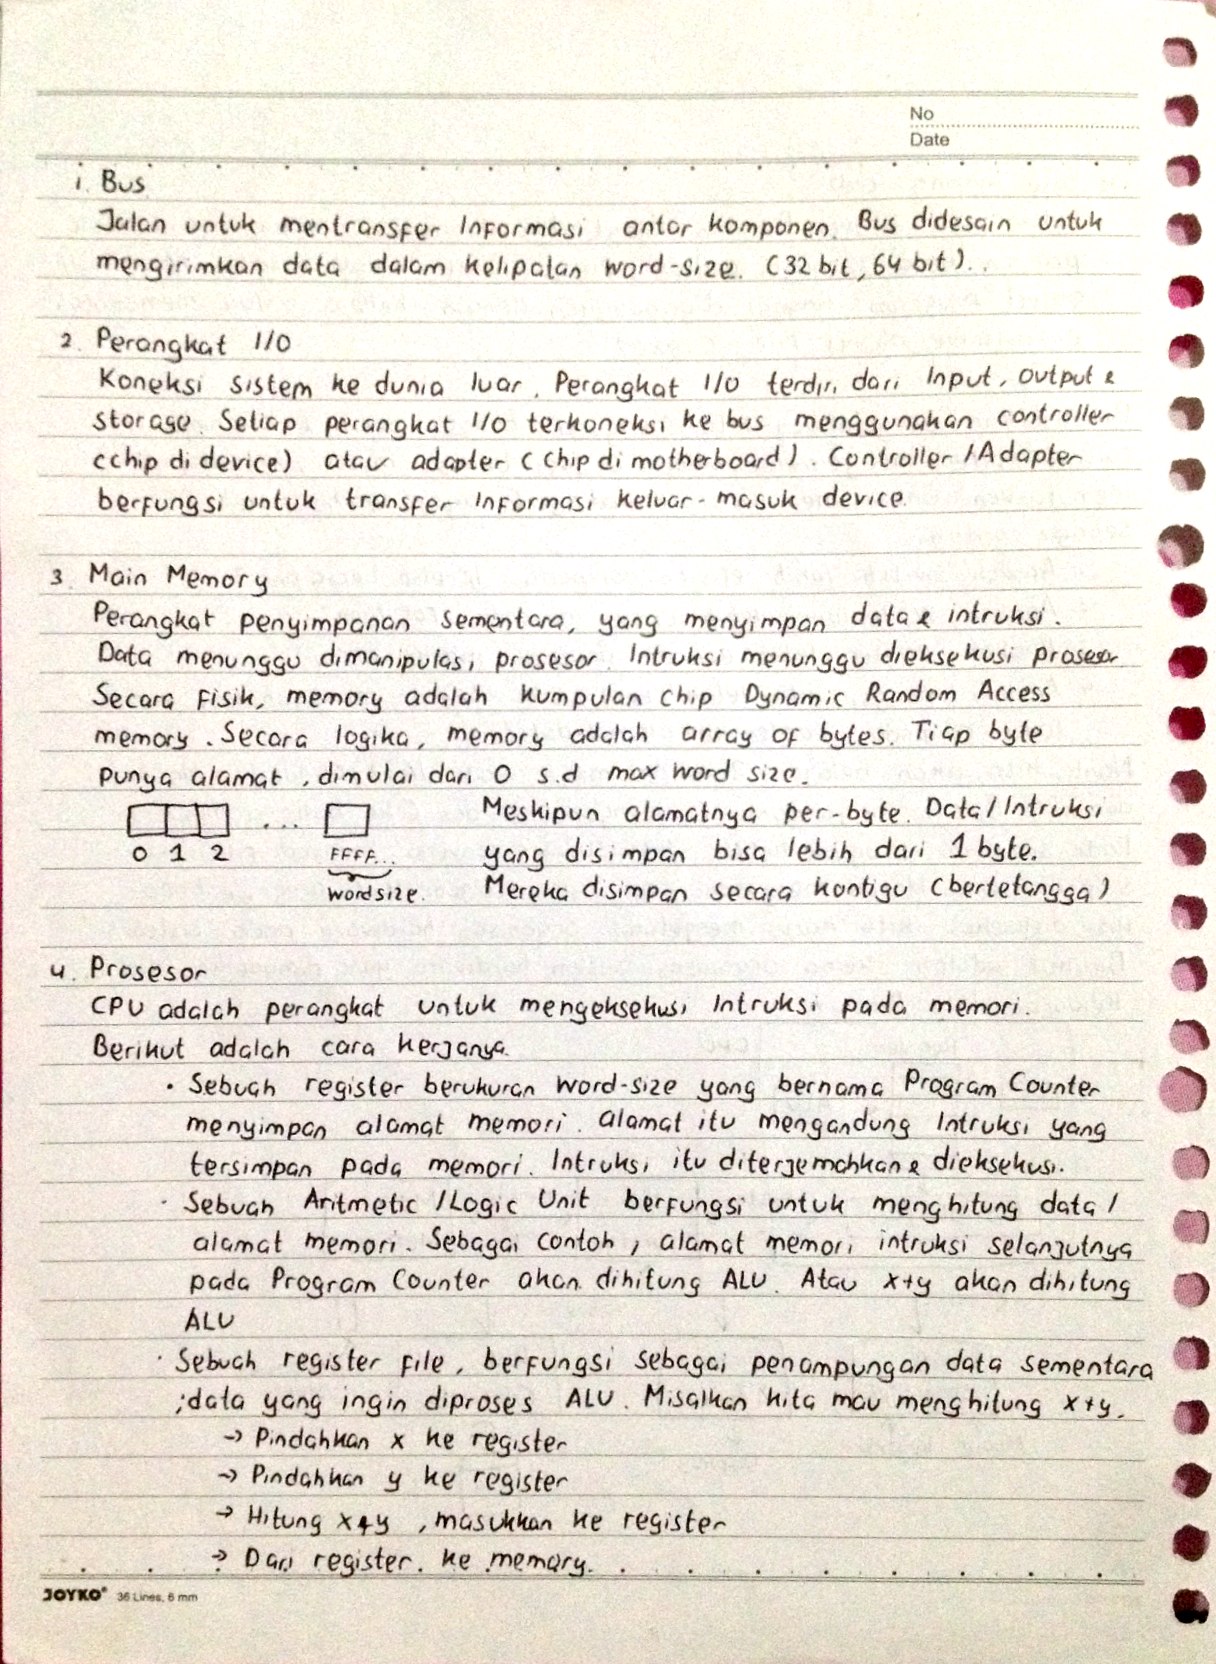 No
Date
1. Bus
Jalan untuk mentransfer Informasi antar komponen. Bus didesain untuk
mengirimkan data dalam kelipatan word-size. (32 bit, 64 bit)..
2. Perangkat I/O
Koneksi sistem ke dunia luar. Perangkat I/O terdiri dari Input, output &
storage. Setiap perangkat I/O terkoneksi ke bus menggunakan controller
(chip di device) atau adapter (chip di motherboard). Controller / Adapter
berfungsi untuk transfer Informasi keluar-masuk device.
3. Main Memory
Perangkat penyimpanan sementara, yang menyimpan data & intruksi.
Data menunggu dimanipulasi prosesor. Intruksi menunggu dieksekusi prosesor
Secara Fisik, memory adalah kumpulan chip Dynamic Random Access
memory. Secara logika, memory adalah array of bytes. Tiap byte
punya alamat, dimulai dari 0 s.d max word size.
Meskipun alamatnya per-byte. Data/Intruksi
0 1 2 ... FFFF... yang disimpan bisa lebih dari 1 byte.
wordsize. Mereka disimpan secara kontigu (bertetangga)
4. Prosesor
CPU adalah perangkat untuk mengeksekusi Intruksi pada memori.
Berikut adalah cara kerjanya.
• Sebuah register berukuran word-size yang bernama Program Counter
menyimpan alamat memori. alamat itu mengandung Intruksi yang
tersimpan pada memori. Intruksi itu diterjemahkan & dieksekusi.
• Sebuah Aritmetic / Logic Unit berfungsi untuk menghitung data /
alamat memori. Sebagai contoh, alamat memori intruksi selanjutnya
pada Program Counter akan dihitung ALU. Atau x+y akan dihitung
ALU
• Sebuah register file, berfungsi sebagai penampungan data sementara
;data yang ingin diproses ALU. Misalkan kita mau menghitung x+y.
→ Pindahkan x ke register
→ Pindahkan y ke register
→ Hitung x+y, masukkan ke register
→ Dari register. ke memory.
JOYKO® 36 Lines, 6 mm